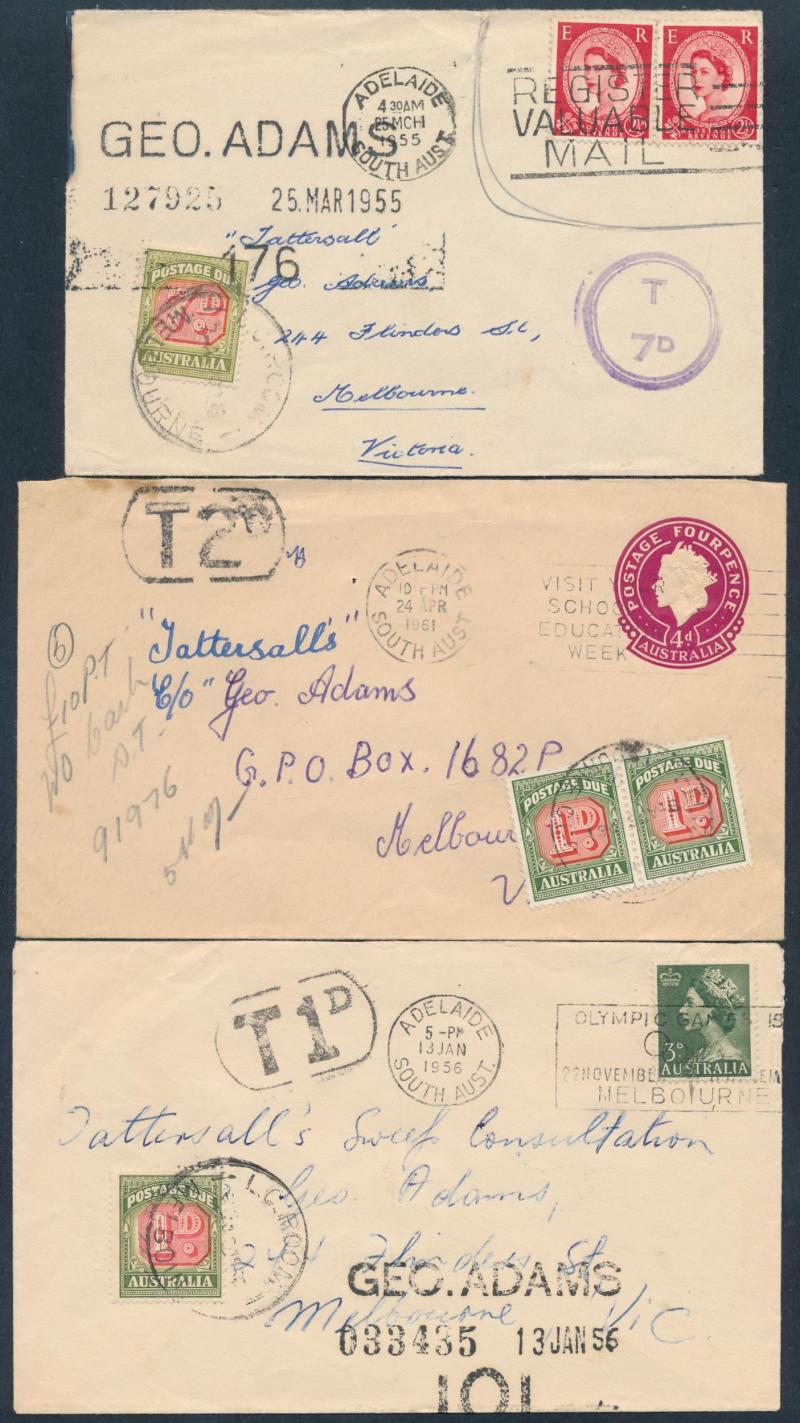 E R E R
REVENUE
2½ D 2½ D
ADELAIDE
4 30AM
25 MCH
1955
SOUTH AUST.
REGISTER
VALUABLE
MAIL
GEO. ADAMS
127925 25.MAR1955
"Tattersall"
176
Geo Adams,
244 Flinders St,
Melbourne.
Victoria.
POSTAGE DUE
D
AUSTRALIA
T
7D
T2D
ADELAIDE
10 - PM
24 APR
1961
SOUTH AUST.
VISIT YOUR
SCHOOL
EDUCATION
WEEK
POSTAGE FOURPENCE
4d
AUSTRALIA
"Tattersall's"
C/o" Geo. Adams
G.P.O. Box. 1682P
Melbour
V
5
£10 P.T
No Cash
91976
POSTAGE DUE
1D.
AUSTRALIA
POSTAGE DUE
1D.
AUSTRALIA
T1D
ADELAIDE
5 -PM
13 JAN
1956
SOUTH AUST.
3D
AUSTRALIA
OLYMPIC GAMES
22 NOVEMBER
MELBOURNE
Tattersall's Sweep Consultation
Geo. Adams,
244 Flinders St,
Melbourne Vic
POSTAGE DUE
1D.
AUSTRALIA
L.C. ROOM
GEO. ADAMS
033435 13 JAN 56
101